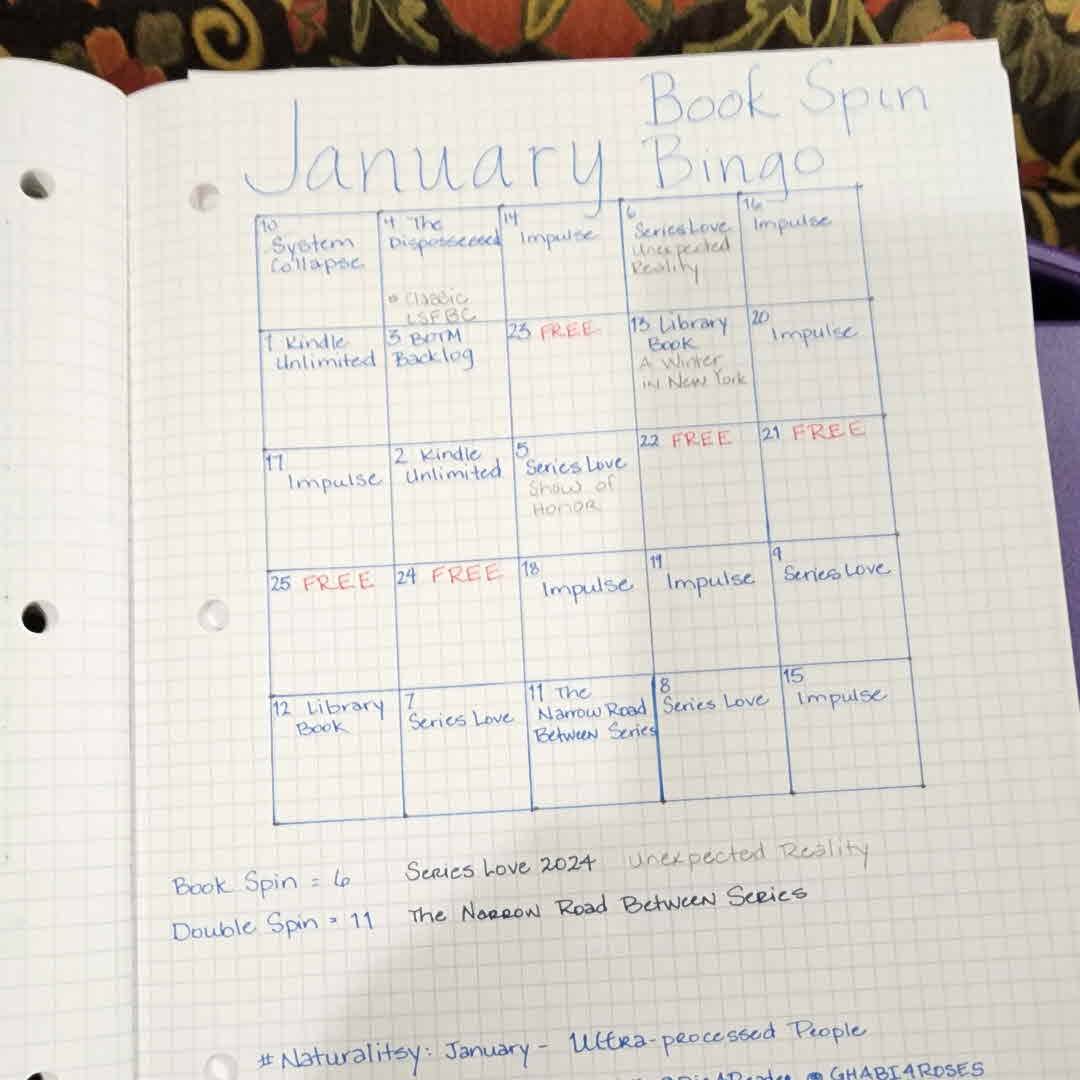 Book Spin
January Bingo
10 4 The 14 6 16
System Disposseeeed Impulse Series Love Impulse
Collapse Unexpected
Reality
• Classic
LSFBC
1 Kindle 3 BOTM 23 FREE 13 Library 20
Unlimited Backlog Book Impulse
A Winter
in New York
17 2 Kindle 5 22 FREE 21 FREE
Impulse Unlimited Series Love
Show of
Honor
25 FREE 24 FREE 18 19 9
Impulse Impulse Series Love
12 Library 7 11 The 8 15
Book Series Love Narrow Road Series Love Impulse
Between Series
Book Spin = 6 Series Love 2024 Unexpected Reality
Double Spin = 11 The Narrow Road Between Series
#Naturalitsy: January - Ultra-processed People
@GHABI4ROSES